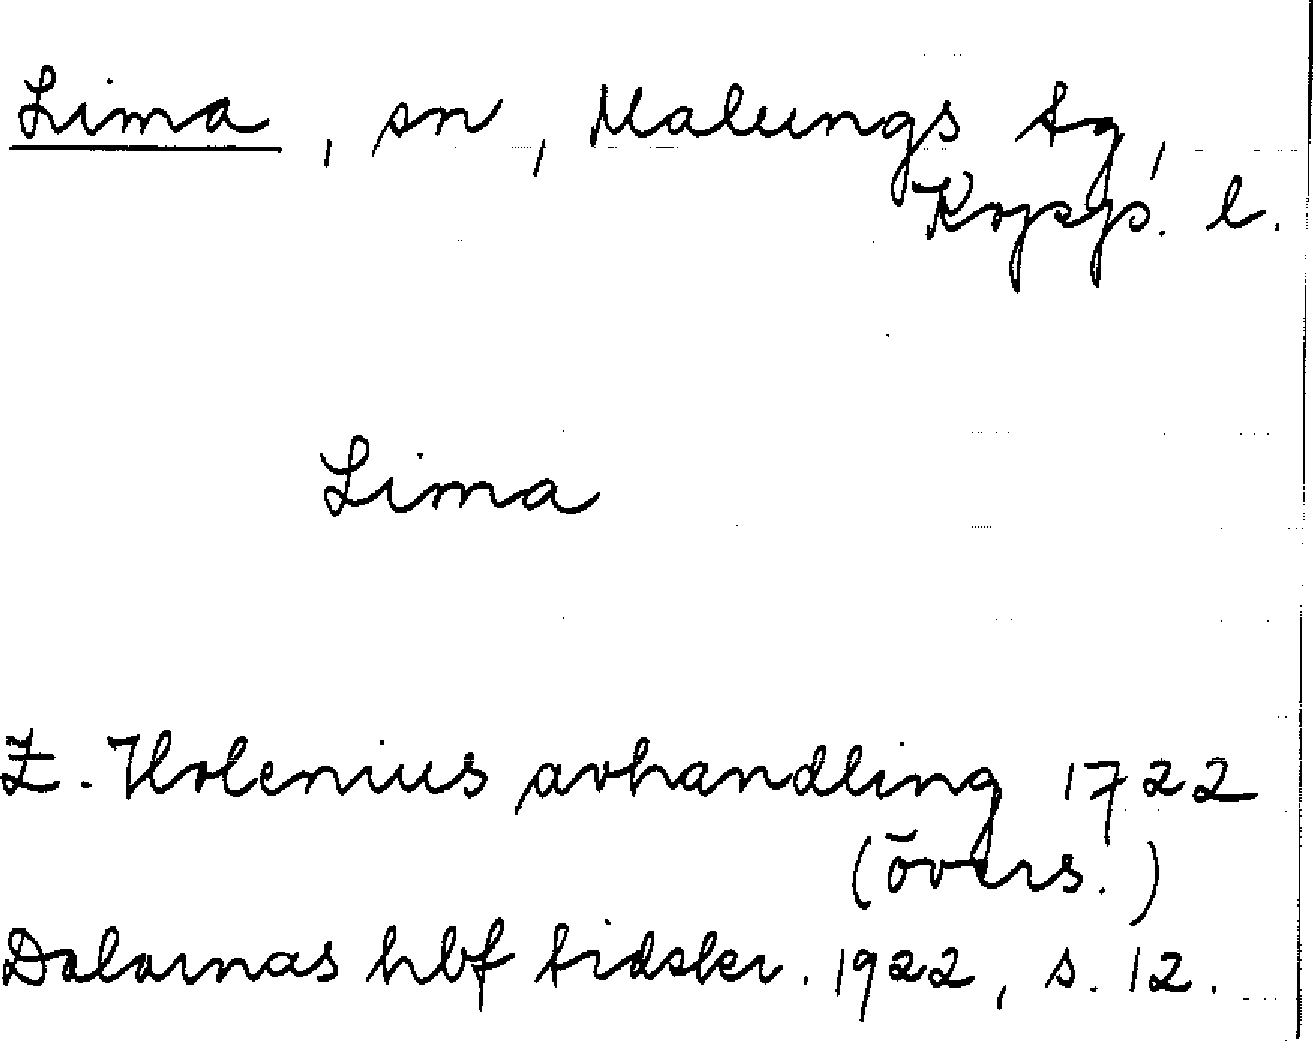 Lima, sn, Malungs tg,
Kopp. l.
Lima
Z. Holenius avhandling 1722
(övers.)
Dalarnas hbf tidskr. 1922, s. 12.